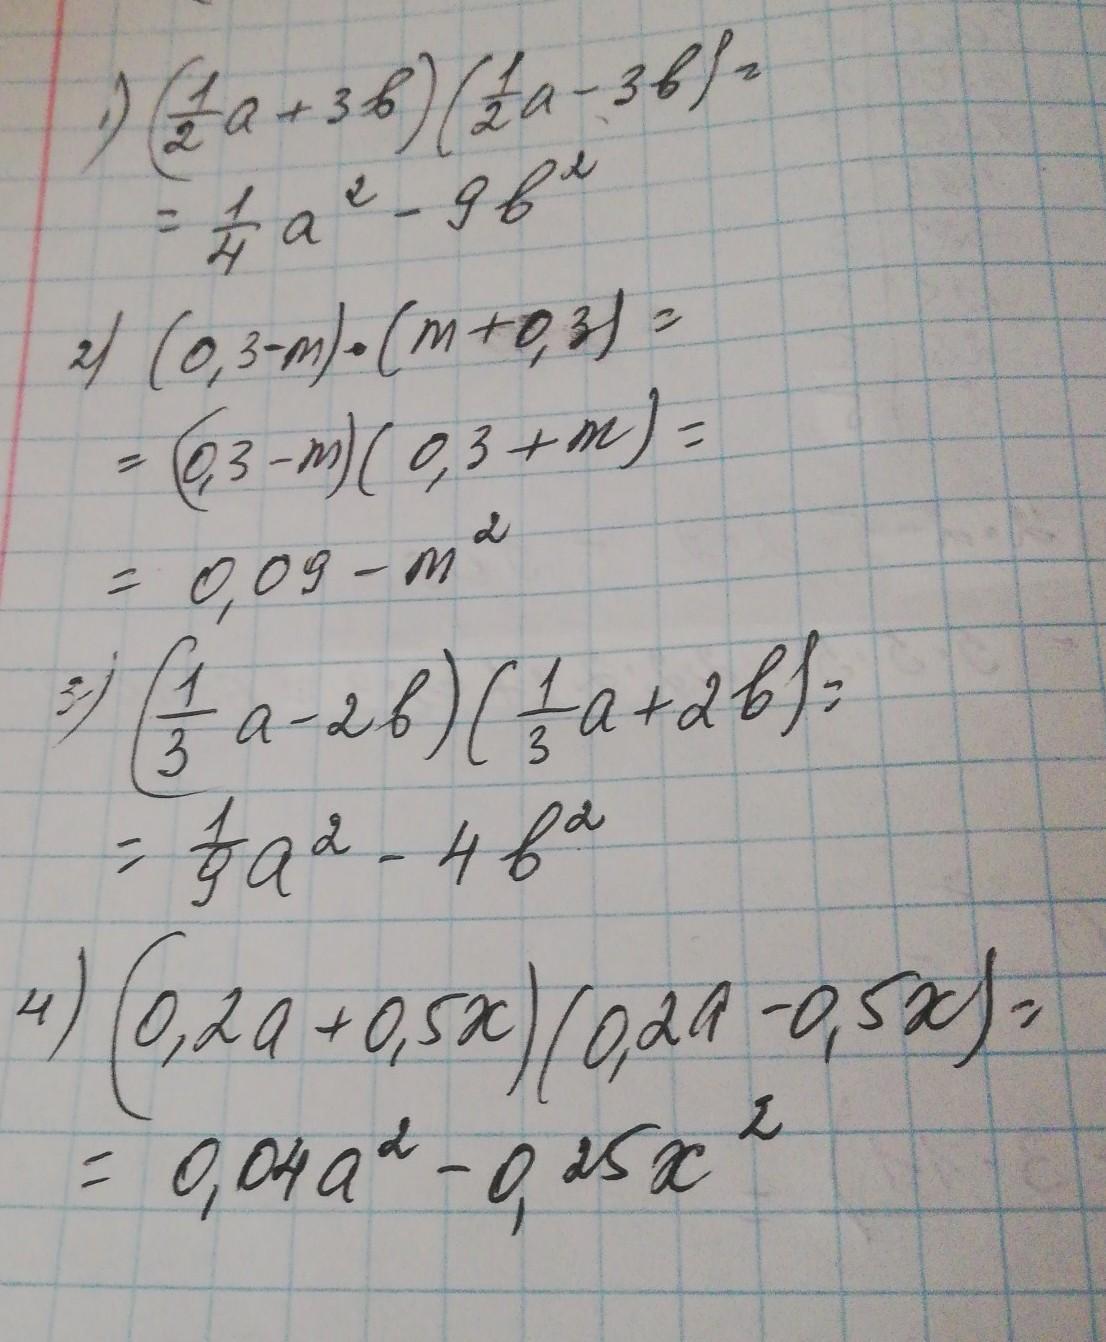 1) (1/2 a + 3b)(1/2 a - 3b) =
= 1/4 a² - 9b²
2) (0,3-m)·(m+0,3) =
= (0,3-m)(0,3+m) =
= 0,09 - m²
3) (1/3 a - 2b)(1/3 a + 2b) =
= 1/9 a² - 4b²
4) (0,2a + 0,5x)(0,2a - 0,5x) =
= 0,04a² - 0,25x²